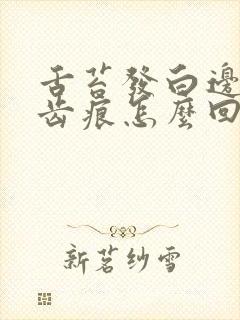 舌苔發白邊
齒痕怎麼回
新茗紗雪